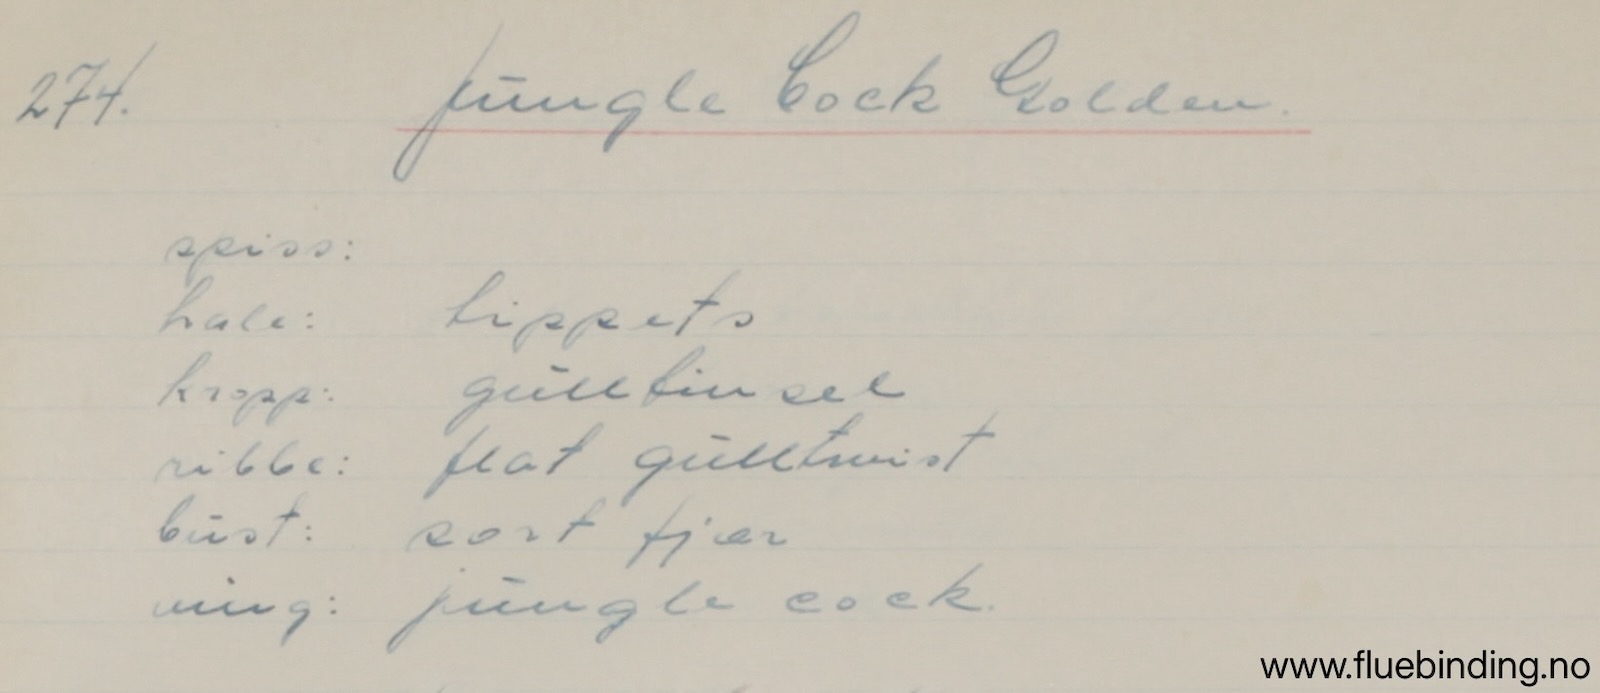 274. Jungle Cock Golden.
spiss:
hale: tippets
kropp: gulltinsel
ribbe: flat gulltwist
bust: sort fjær
ving: jungle cock.
www.fluebinding.no